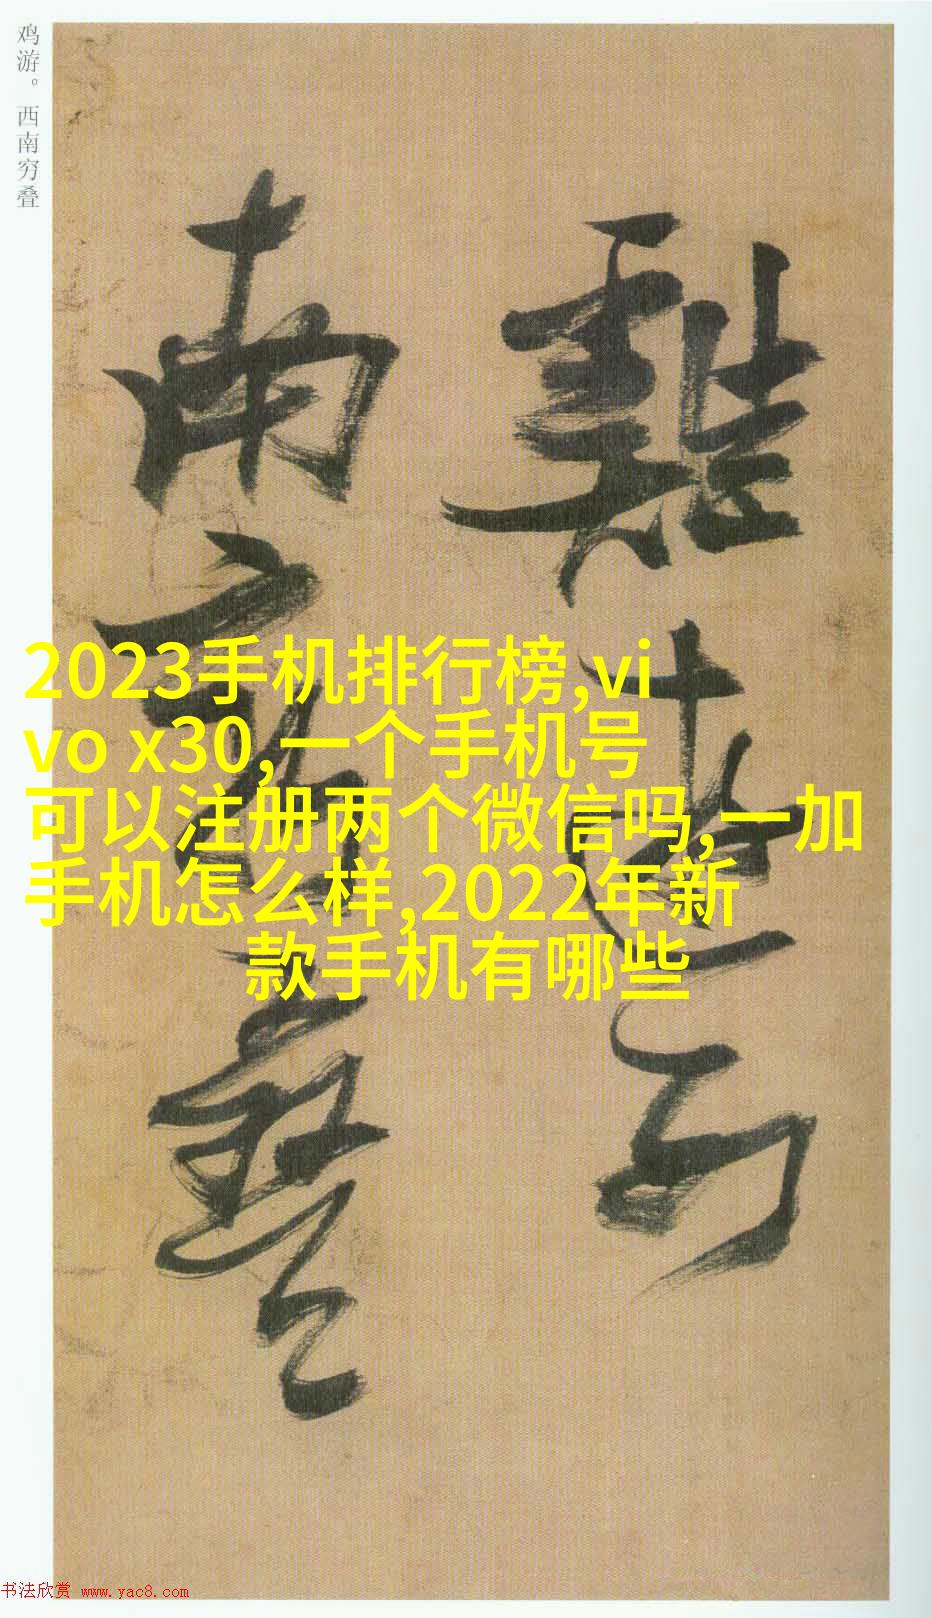 鸡游。西南穷叠
雞遊西
南窮疊
2023手机排行榜,vi
vo x30,一个手机号
可以注册两个微信吗,一加
手机怎么样,2022年新
款手机有哪些
书法欣赏 www.yac8.com